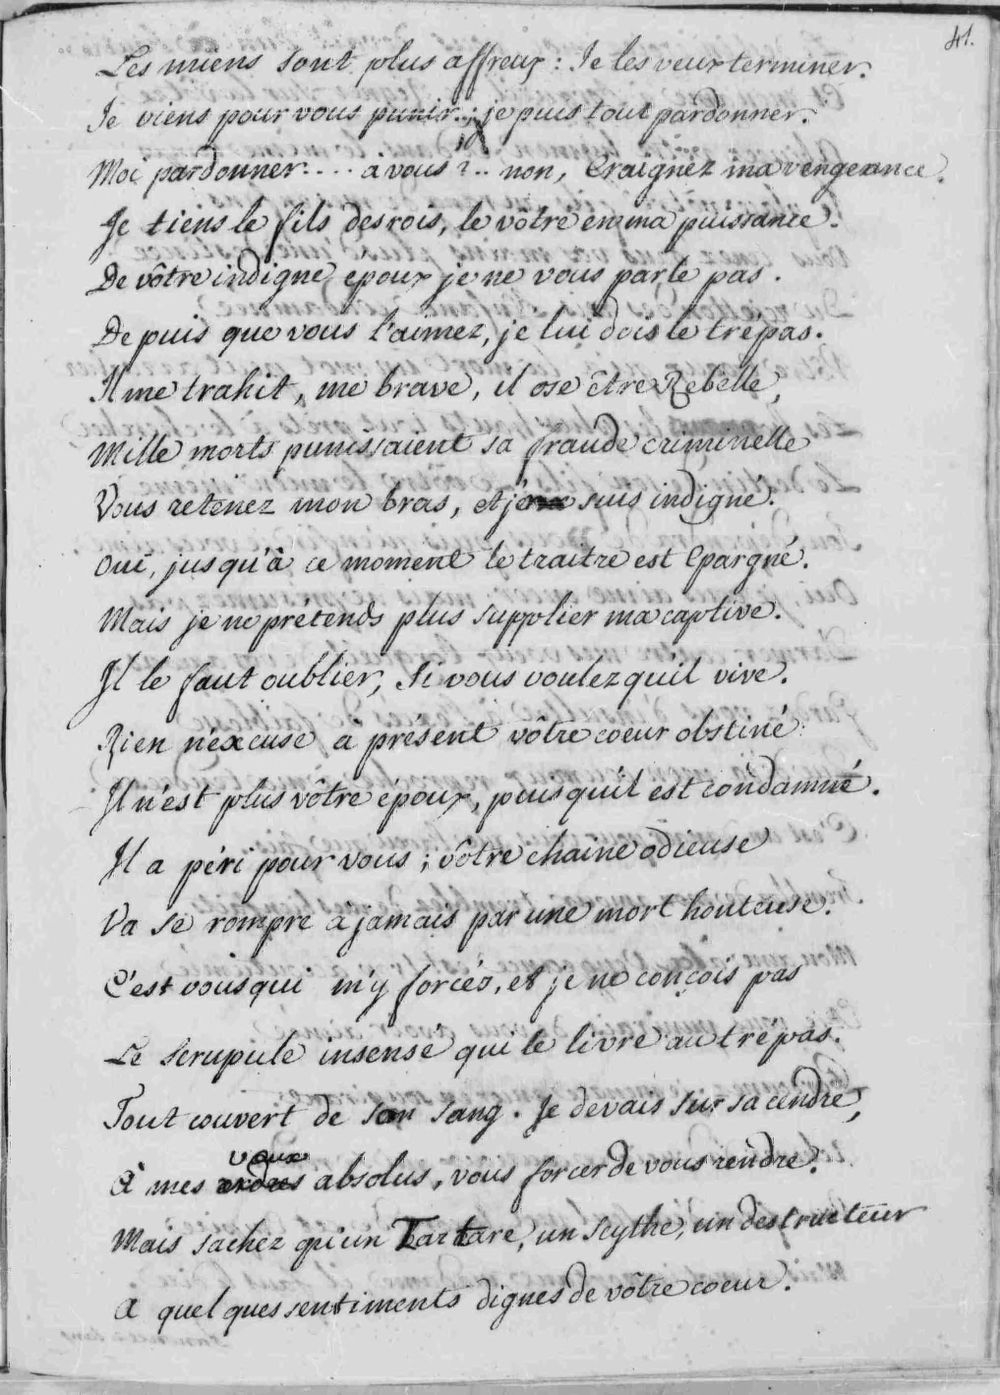 41.
Les miens sont plus affreux : Je les veux terminer.
Je viens pour vous punir..; je puis tout pardonner.
Moi pardonner.... à vous ?.. non, Craignez ma vengeance.
Je tiens le fils des rois, le vôtre en ma puissance.
De vôtre indigne epoux je ne vous parle pas.
Depuis que vous l'aimez, je lui dois le trépas.
Il me trahit, me brave, il ose être Rebelle,
Mille morts punissaient sa fraude criminelle
Vous retenez mon bras, et j'en suis indigné.
Oui, jusqu'à ce moment le traitre est Epargné.
Mais je ne prétends plus supplier ma captive.
Il le faut oublier, Si vous voulez quil vive.
Rien n'éxcuse a présent vôtre coeur obstiné:
Il n'est plus vôtre époux, puisqu'il est condamné.
Il a péri pour vous ; vôtre chaine odieuse
Va se rompre a jamais par une mort honteuse.
C'est vous qui m'y forcéz, et je ne conçois pas
Le Scrupule insensé qui le livre au trépas.
Tout couvert de son sang. Je devais sur sa cendre,
vœux
À mes ordres absolus, vous forcer de vous rendre.
Mais sachez qu'un Tartare, un Scythe, un destructeur
A quelques sentiments dignes de vôtre coeur.